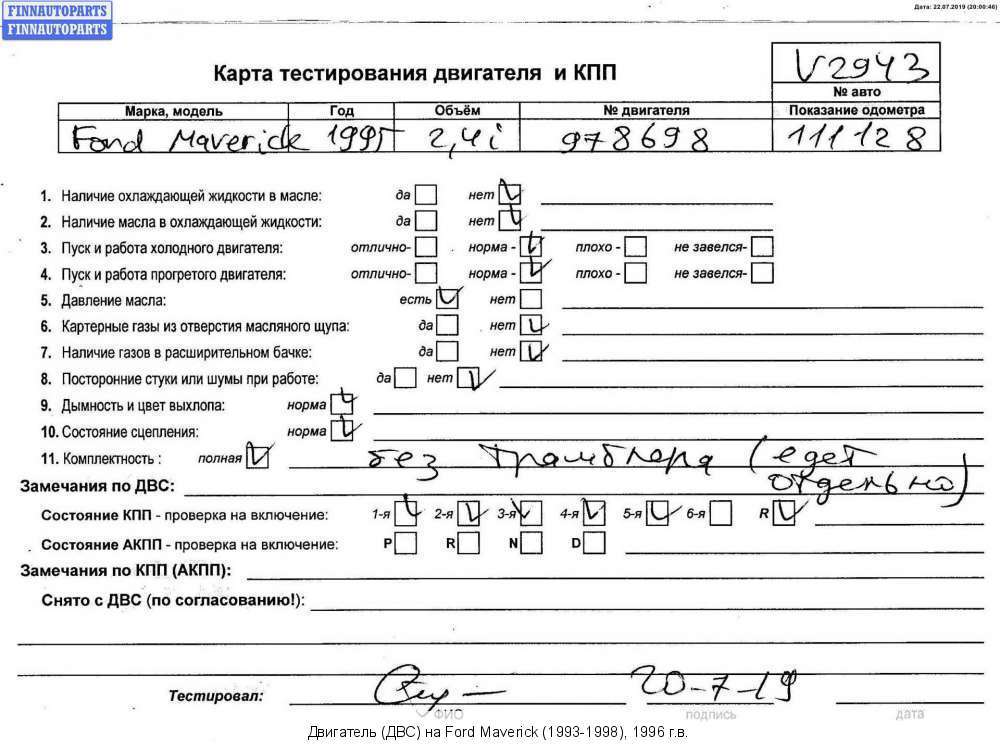 FINNAUTOPARTS
FINNAUTOPARTS
Дата: 22.07.2019 (20:00:46)
Карта тестирования двигателя и КПП
V2943
№ авто
Марка, модель Год Объём № двигателя Показание одометра
Ford Maverick 1995 2,4i 978698 111128
1. Наличие охлаждающей жидкости в масле: да нет
2. Наличие масла в охлаждающей жидкости: да нет
3. Пуск и работа холодного двигателя: отлично- норма - плохо - не завелся-
4. Пуск и работа прогретого двигателя: отлично- норма - плохо - не завелся-
5. Давление масла: есть нет
6. Картерные газы из отверстия масляного щупа: да нет
7. Наличие газов в расширительном бачке: да нет
8. Посторонние стуки или шумы при работе: да нет
9. Дымность и цвет выхлопа: норма
10. Состояние сцепления: норма
11. Комплектность : полная без трамблера (едет
Замечания по ДВС: отдельно)
Состояние КПП - проверка на включение: 1-я 2-я 3-я 4-я 5-я 6-я R
Состояние АКПП - проверка на включение: P R N D
Замечания по КПП (АКПП):
Снято с ДВС (по согласованию!):
Тестировал: 20-7-19
ФИО подпись дата
Двигатель (ДВС) на Ford Maverick (1993-1998), 1996 г.в.